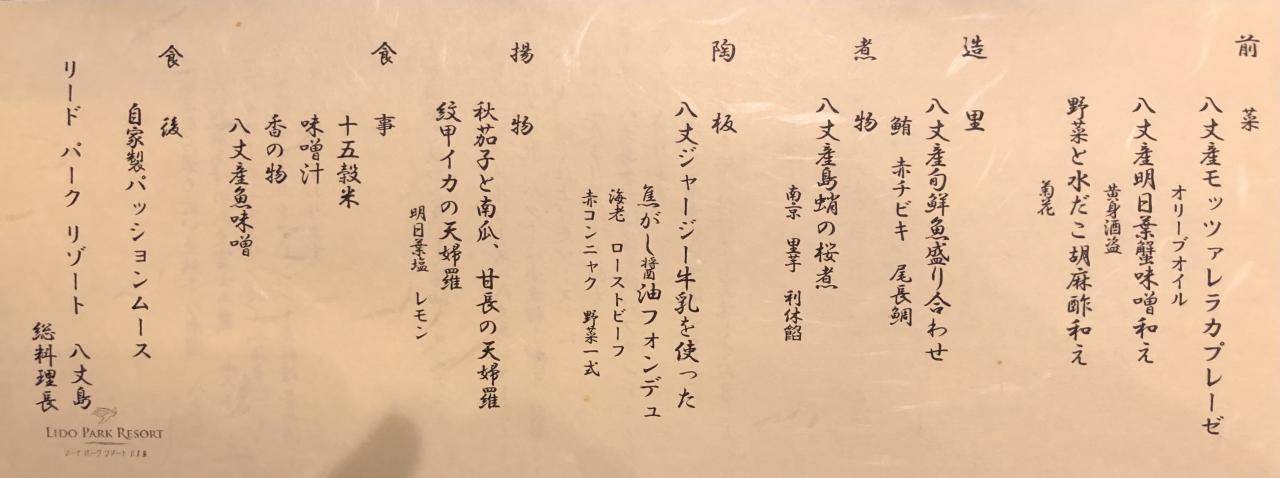 前菜
八丈産モッツァレラカプレーゼ
オリーブオイル
八丈産明日葉蟹味噌和え
黄身酒盗
野菜と水だこ胡麻酢和え
菊花
造里
八丈産旬鮮魚盛り合わせ
鮪 赤チビキ 尾長鯛
煮物
八丈産島蛸の桜煮
南京 里芋 利休餡
陶板
八丈ジャージー牛乳を使った
焦がし醤油フォンデュ
海老 ローストビーフ
赤コンニャク 野菜一式
揚物
秋茄子と南瓜、甘長の天婦羅
紋甲イカの天婦羅
明日葉塩 レモン
食事
十五穀米
味噌汁
香の物
八丈産魚味噌
食後
自家製パッションムース
リード パーク リゾート 八丈島
総料理長
LIDO PARK RESORT
リード パーク リゾート 八丈島